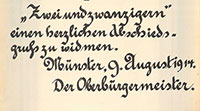 „Zweiundzwanzigern"
einen herzlichen Abschieds-
gruß zu widmen.
Münster, 9. August 1914.
Der Oberbürgermeister.